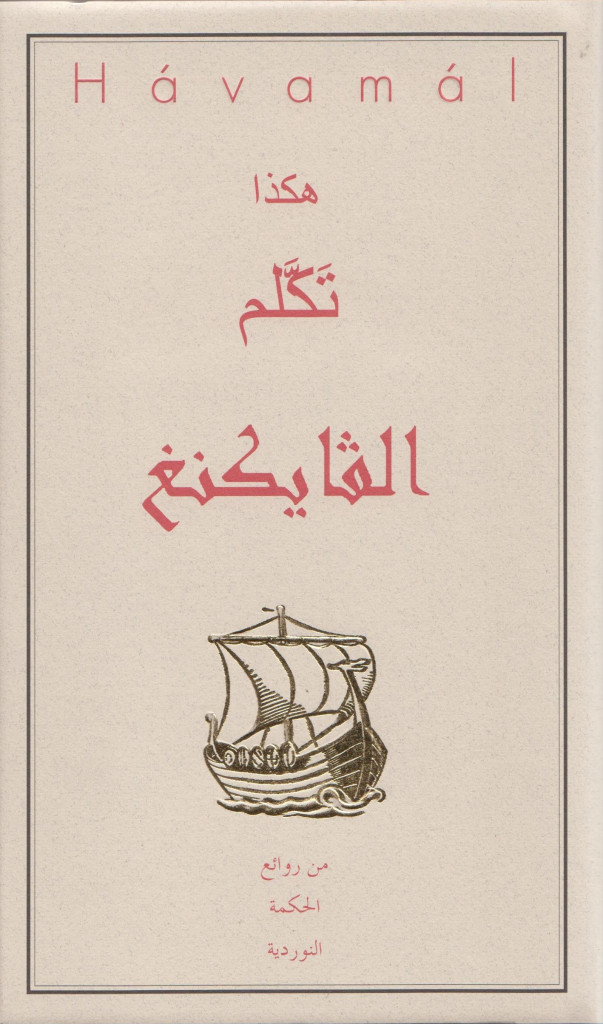 Hávamál
هكذا
تَكَلَّم
الڤايكنغ
من روائع
الحكمة
النوردية